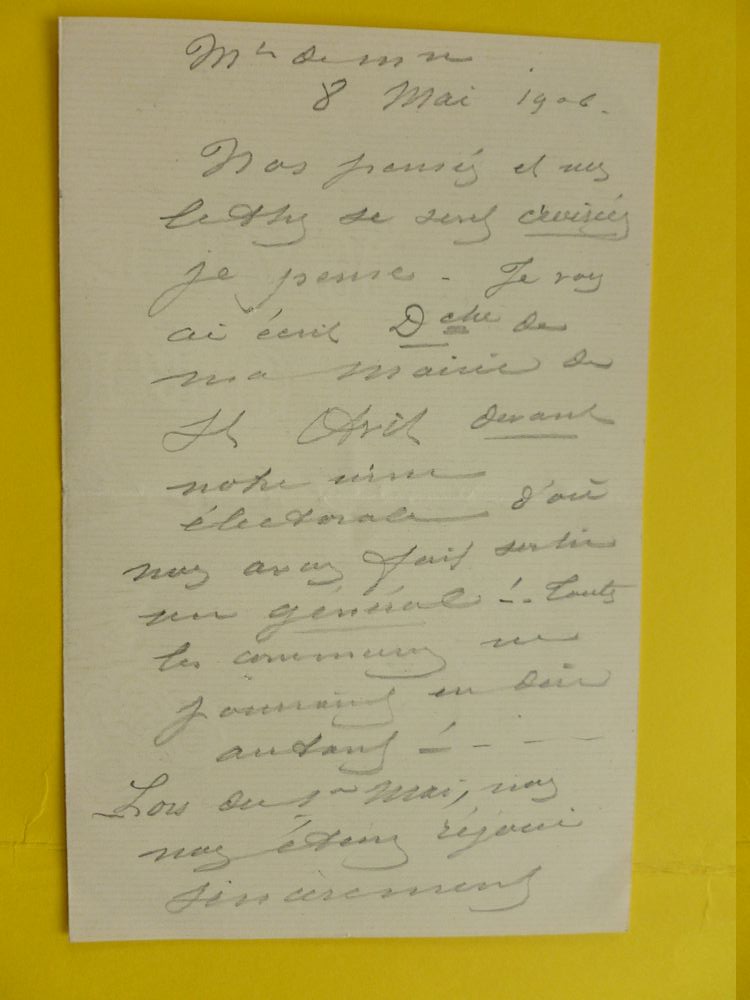 8 Mai 1906.
Nos pensées et nos
lettres se sont croisées
je pense - Je vous
ai écrit Dche de
ma Mairie de
St Avit devant
notre urne
électorale d'où
nous avons fait sortir
un général ! - Toutes
les communes ne
pourraient en dire
autant ! - -
Lors du 1er Mai, nous
nous étions réjouis
sincèrement